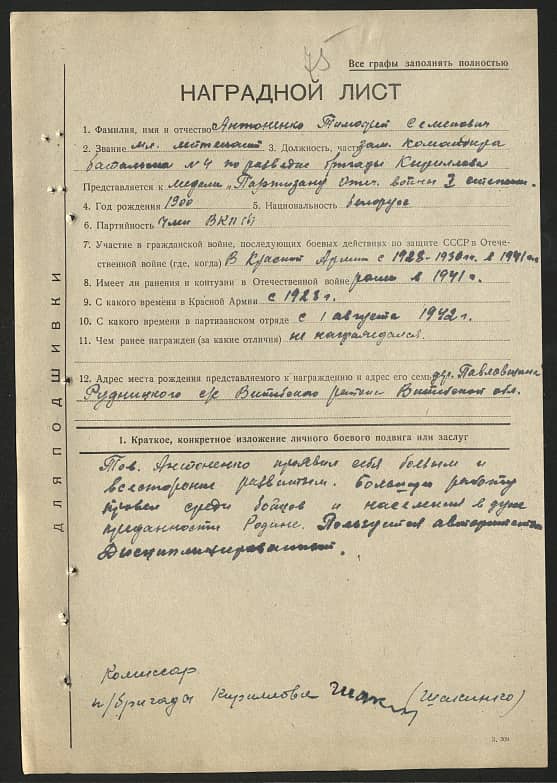 Все графы заполнять полностью
НАГРАДНОЙ ЛИСТ
1. Фамилия, имя и отчество Антоненко Тимофей Семенович
2. Звание мл. лейтенант 3. Должность, часть зам. командира
батальона №4 по разведке бригады Кириллова
Представляется к медали „Партизану Отеч. войны" 3 степени.
4. Год рождения 1900 5. Национальность белорус
6. Партийность член ВКП(б)
7. Участие в гражданской войне, последующих боевых действиях по защите СССР в Отече-
ственной войне (где, когда) В Красной Армии с 1928-1930гг. в 1941г.
8. Имеет ли ранения и контузии в Отечественной войне ранен в 1941г.
9. С какого времени в Красной Армии с 1928г.
10. С какого времени в партизанском отряде с 1 августа 1942г.
11. Чем ранее награжден (за какие отличия) не награждался.
12. Адрес места рождения представляемого к награждению и адрес его семьи дер. Павловщина
Рудницкого с/с Витебского района Витебской обл.
I. Краткое, конкретное изложение личного боевого подвига или заслуг
Тов. Антоненко проявил себя боевым и
всесторонне развитым. Большую работу
провел среди бойцов и населения в духе
преданности Родине. Пользуется авторитетом
Дисциплинированный.
Комиссар
п/бригады Кириллова
ДЛЯ ПОДШИВКИ